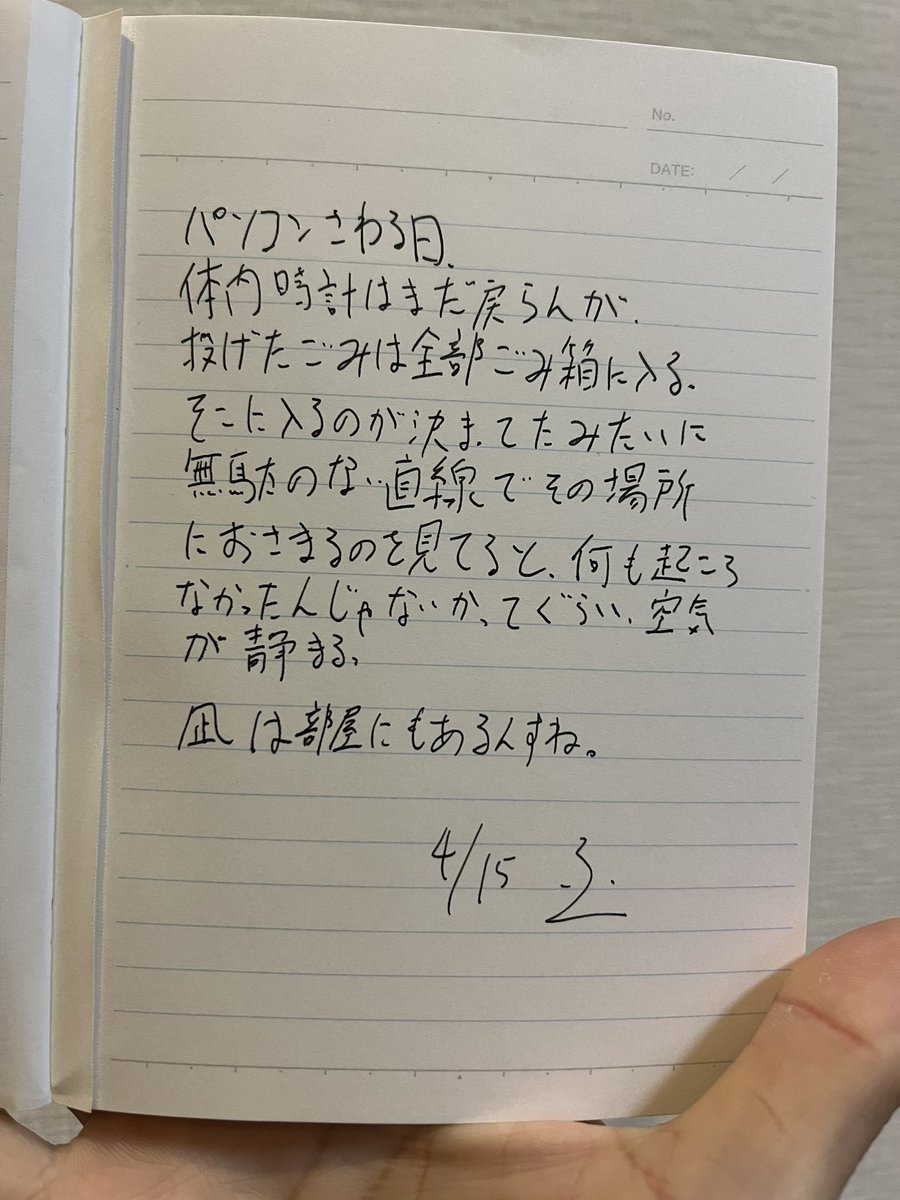 No.
DATE: / /
パソコンさわる日、
体内時計はまだ戻らんが、
投げたごみは全部ごみ箱に入る。
そこに入るのが決まってたみたいに
無駄のない直線でその場所
におさまるのを見てると、何も起こら
なかったんじゃないかってぐらい、空気
が静まる。
凪は部屋にもあるんすね。
4/15